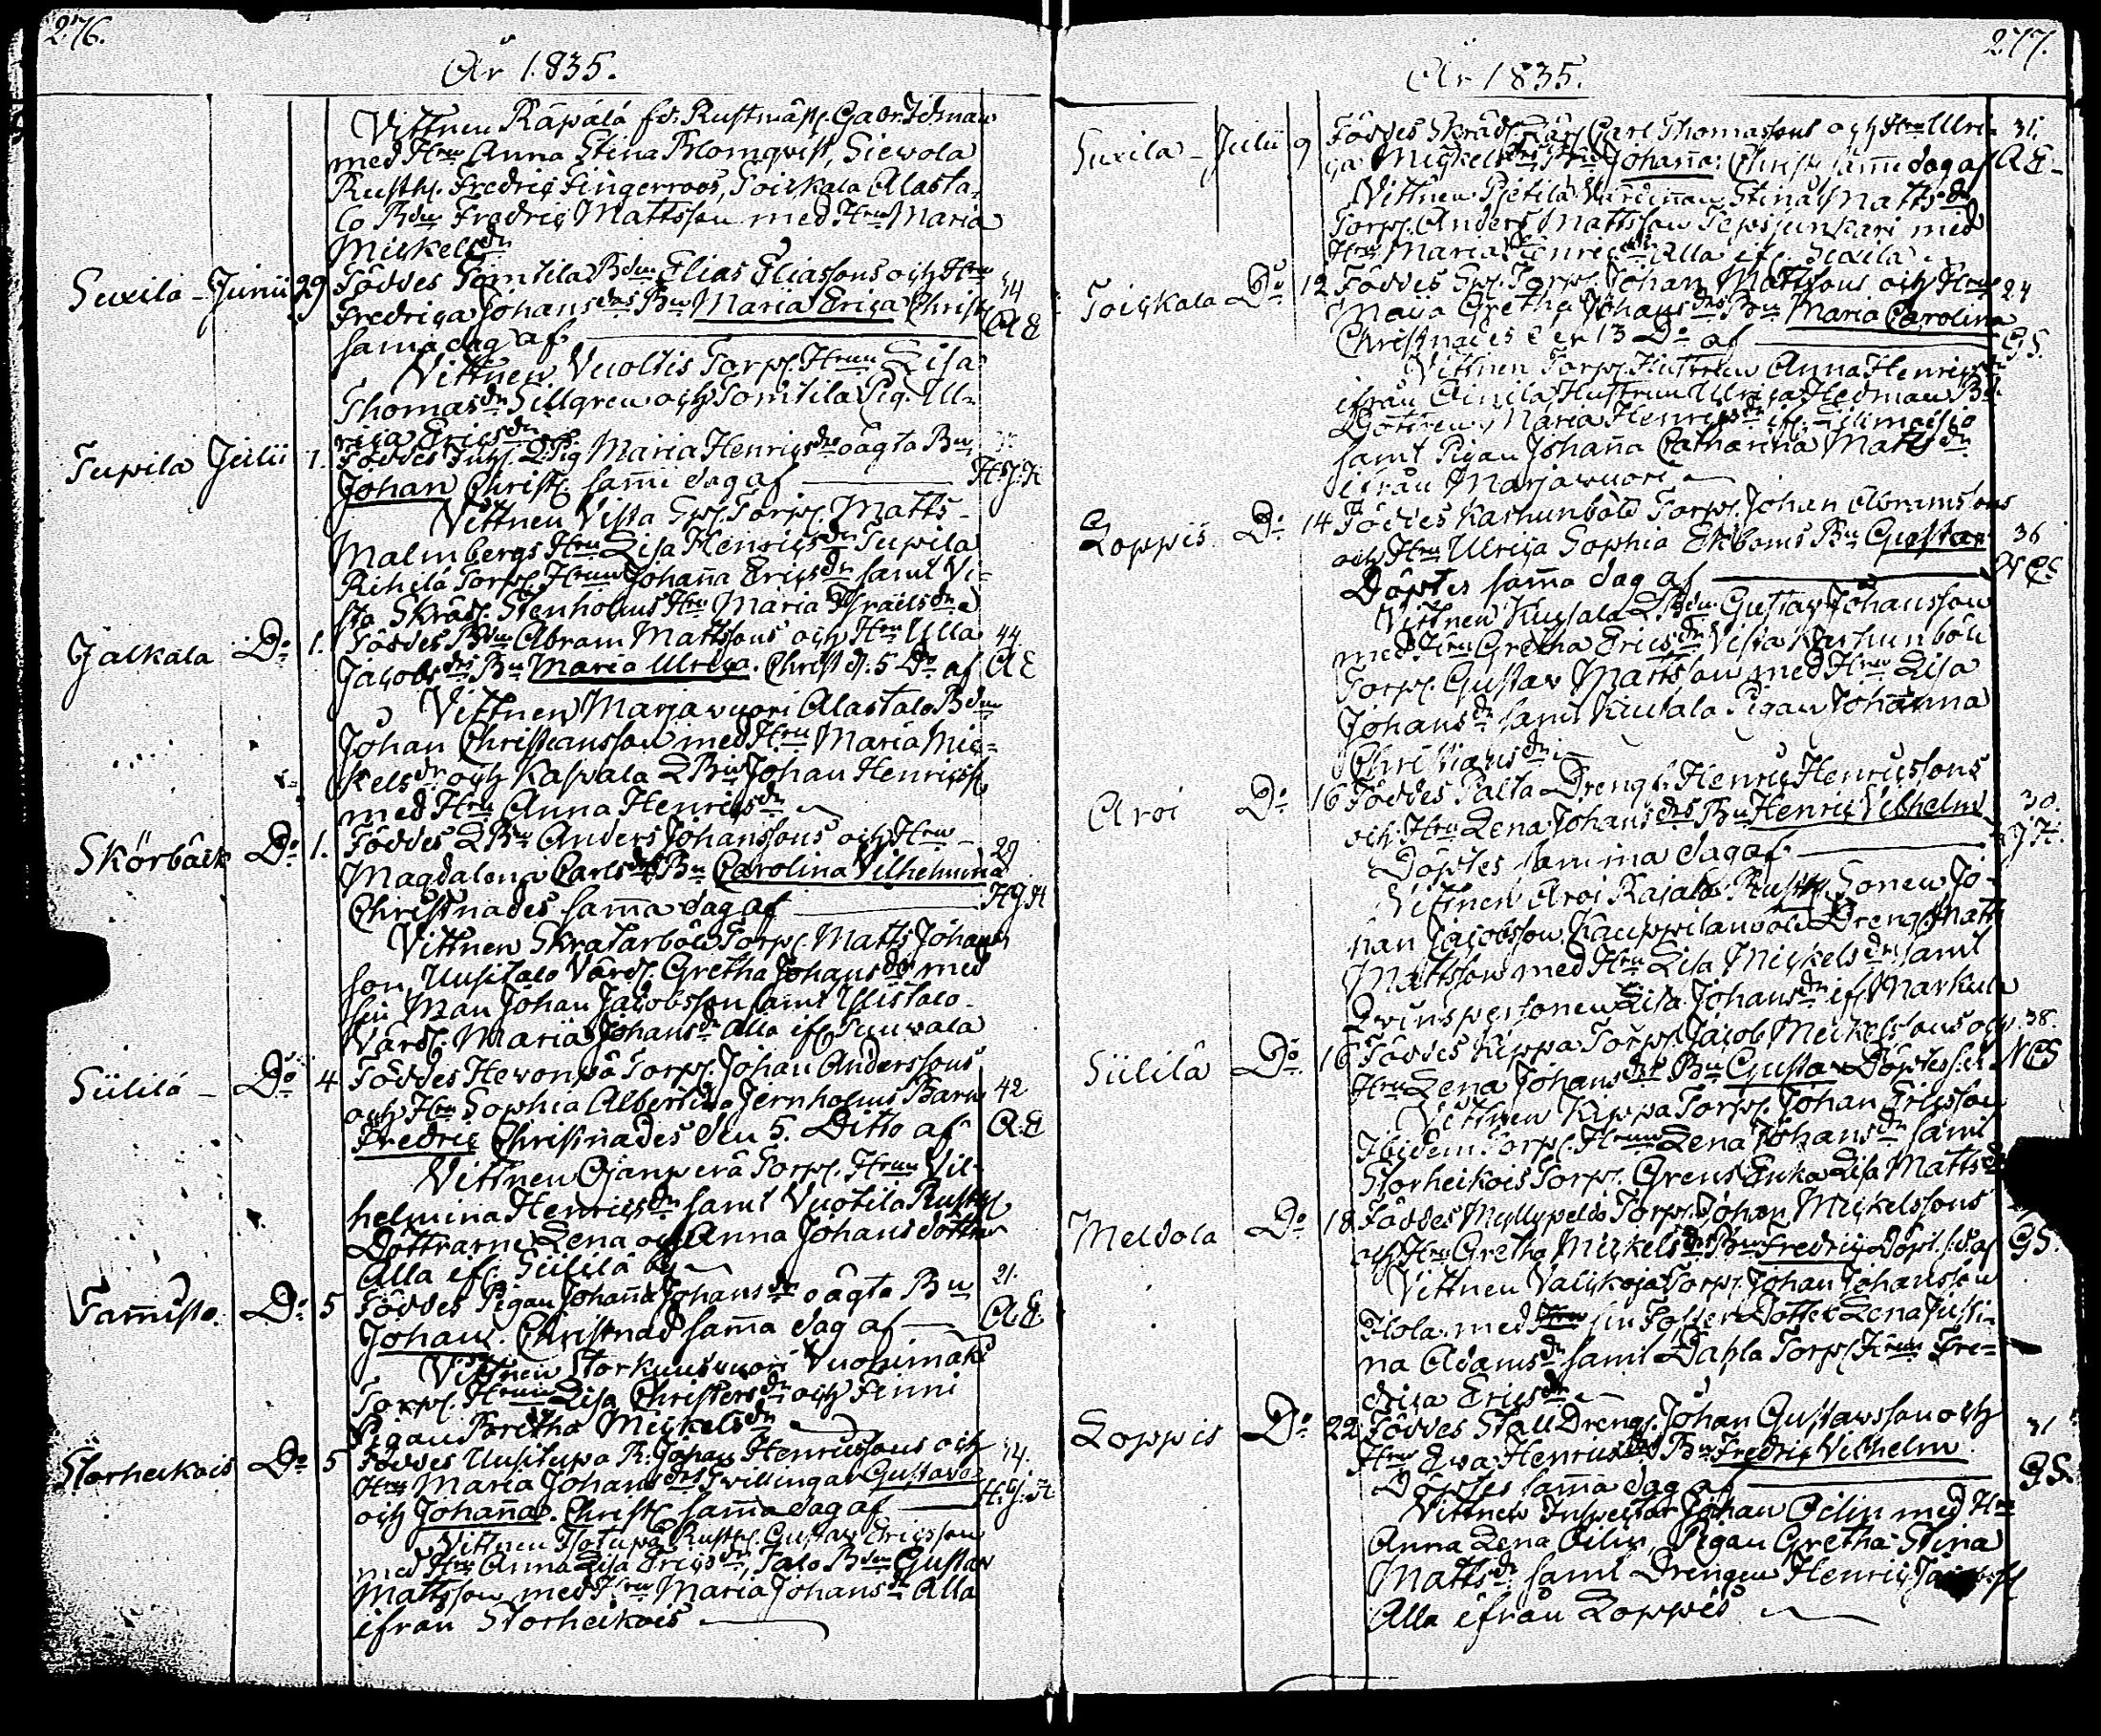 276.
År 1835.
Vittnen Räpälä fd. Rustmäst. Gabr. Idman
med Hru Anna Stina Blomqvist, Siewola
Rusth. Fredric Fingerroos, Toickala Alasta-
lo Bdn Fredric Mattsson med Hru Maria
Mickelsdr
Suxila Junii 29 Föddes Tomtila Bdn Elias Eliassons och Hru 34
Fredrica Johansdrs Bn Maria Erica Christ.
sama dag af A E
Vittnen Vuoltis Torp. Hrun Lisa
Thomasdr Sillgren och Tomtila Pig. Ul-
rica Ericsdr
Tupila Julii 1. Föddes Pig Maria Henricsdrs oägta Bn
Johan Christ. sami dag af H.J.H
Vittnen Vista Torp. Matts
Malmbergs Hru Lisa Henricsdr Tupila
Rihilä Torp. Hrun Johanna Ericsdr samt Vi-
sta Skräd. Stenholms Hru Maria Israelsdr
Jalkala Do 1. Föddes Bdn Abram Mattssons och Hru Ulla 44
Jacobsdrs Bn Maria Ulrica Christ. d. 5 Do af A E
Vittnen Marjawuori Alastalo Bdn
Johan Christiansson med Hru Maria Mic-
kelsdr och Kaswala Johan Henricss.
med Hru Anna Henricsdr
Skörbäck Do 1. Föddes Anders Johanssons och Hru 29
Magdalena Carlsdrs Bn Carolina Vilhelmina
Christnades sama dag af H J H
Vittnen Skratarböle Torp. Matts Johans
son, Uusitalo Värd. Gretha Johansdr med
sin Man Johan Jacobsson samt Ylistalo
Värd. Maria Johansdr Alla if. Tuuwala
Siililä Do 4 Föddes Hewonpä Torp. Johan Anderssons
och Hru Sophia Albertina Jernholms Barn 42
Fredric Christnades den 5. Ditto af A.E
Vittnen Ojanperä Torp. Hrun Vil-
helmina Henricsdr samt Vuotila Rusth.
Döttrarne Lena och Anna Johansdöttrar
Alla if. Siililä by
Tamisto. Do 5 Föddes Pigan Johanna Johansdrs oägta Bn 21.
Johan. Christnad sama dag af A.E
Vittnen Storkuusvuori Vuohimäki
Torp. Hrun Lisa Christersdr och Finni
Pigan Gretha Mickelsdr
Storheikois Do 5 Föddes Uusitupa R. Johan Henricssons och 34.
Hru Maria Johansdrs Tvillingar Gustava
och Johanna. Christ. sama dag af H.J.H
Vittnen Isotupa Rusth. Gustav Ericsson
med Hru Anna Lisa Ericsdr, Talo Bdn Gustav
Mattsson med Hru Maria Johansdr Alla
ifrån Storheikois
277.
År 1835.
Suxila Julii 9 Föddes Skräd. Carl Thomassons och Hru Ulri- 31.
ca Mickelsdrs Bn Johanna: Christ. sami dag af A E
Vittnen Stina Mattsdr
Torp. Anders Mattsson med
Hru Maria Henricsdr Alla if. Suxila
Toickala Do 12 Föddes Torp. Johan Mattssons och Hru 24
Maija Gretha Johansdrs Bn Maria Carolina
Christnades den 13 Do af G S.
Vittnen Torp. Hustrun Anna Henricsdr
ifrån Ainila Hustrun Ulrica Hedman
Dottren Maria Henricsdr
samt Pigan Johanna Catharina Mattsdr
ifrån Marjawuori
Loppis Do 14 Föddes Karhunböle Torp. Johan Abramssons
och Hru Ulrica Sophia Ekboms Bn Gustav 36
Döptes sama dag af
Vittnen Kussala Gustav Johansson
med Hru Gretha Ericsdr Vista Karhunböle
Torp. Gustav Mattsson med Hru Lisa
Johansdr samt Kussala Pigan Johanna
Christiansdr
Aroi Do 16 Föddes Palta Dreng. Henric Henricssons
och Hru Lena Johansdrs Bn Henric Vilhelm 30.
Döptes samma dag af H J H.
Vittnen Aroi Rajala Rusth. Sonen Jo-
han Jacobsson, Kauppilanböle Dreng. Matts
Mattsson med Hru Lisa Mickelsdr samt
Qvinspersonen Lisa Johansdr if. Markula
Siililä Do 16 Föddes Kippa Torp. Jacob Mickelssons och 38.
Hru Lena Johansdrs Bn Gustav Döptes
Vittnen Kippa Torp. Johan Ericsson
Ibidem Torp. Hrun Lena Johansdr samt
Storheikois Torp. Grens Enka Lisa Mattsdr
Meldola Do 18 Föddes Myllypeldo Torp. Johan Mickelssons
och Hru Gretha Mickelsdrs Bn Fredric Döpt. s.d. af G S.
Vittnen Valickoja Torp. Johan Johansson
Flola med Hru sin Foster Dotter Lena Justi-
na Adamsdr samt Dahla Torp. Hrun Fre-
drica Ericsdr
Loppis Do 22 Föddes Stall Dreng. Johan Gustavsson och 31
Hru Eva Henricsdrs Bn Fredric Vilhelm
Döptes sama dag af G S.
Vittnen Inspector Johan Oilin med Hru
Anna Lena Oilin, Pigan Gretha Stina
Mattsdr samt Drengen Henric Jacobss.
Alla ifrån Loppis